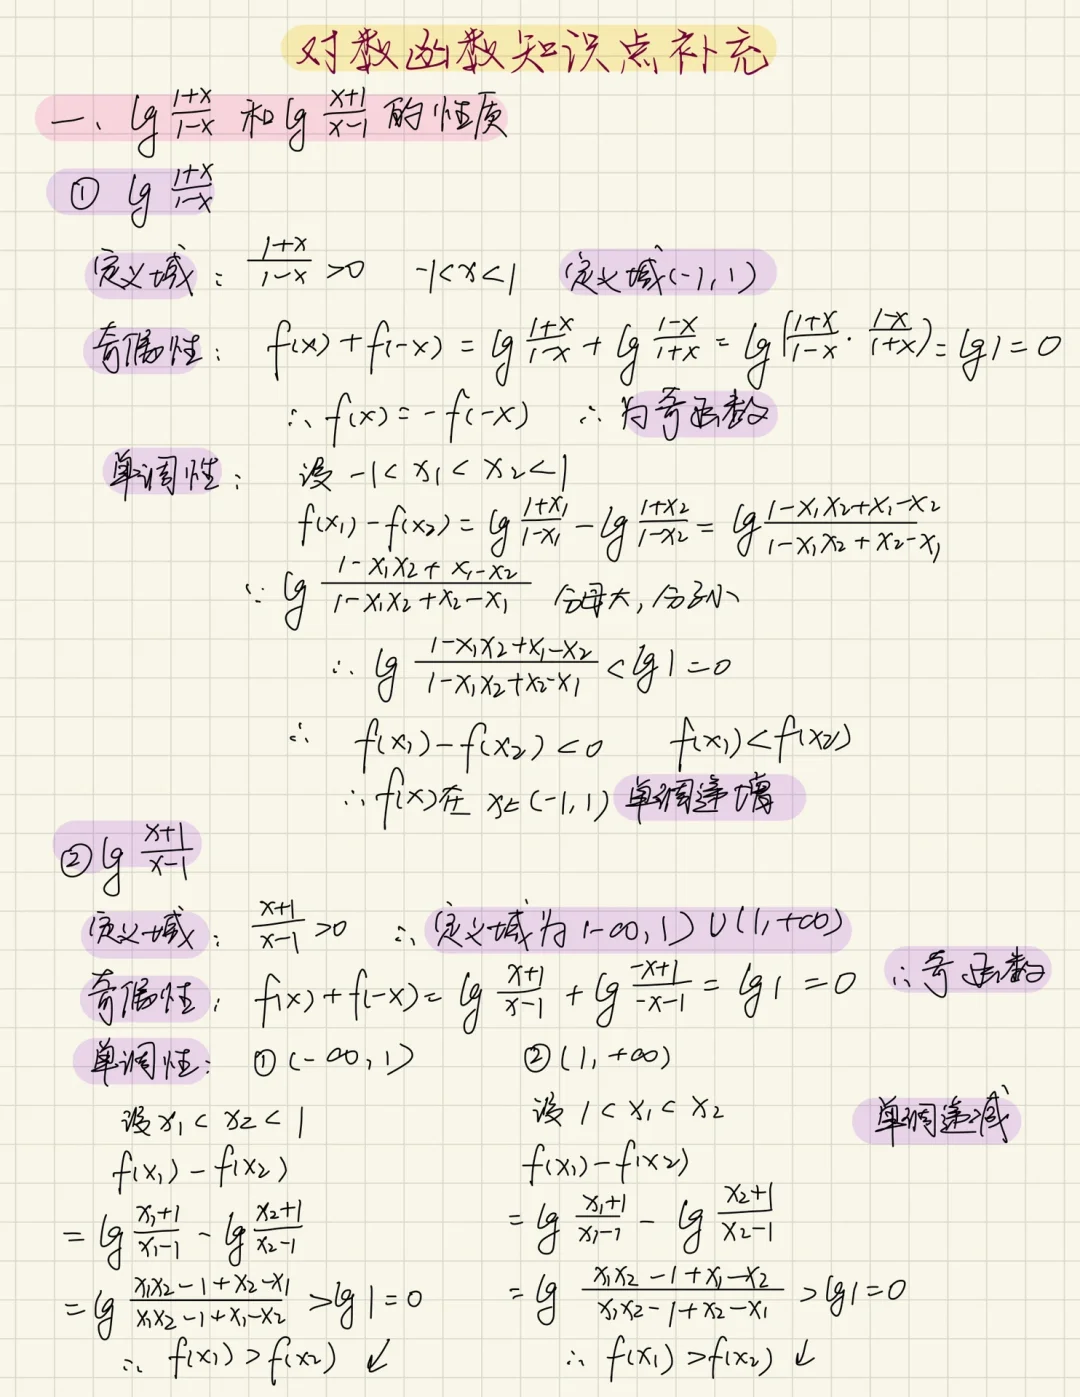 对数函数知识点补充
一、lg (1+x)/(1-x) 和 lg (x+1)/(x-1) 的性质
① lg (1+x)/(1-x)
定义域: (1+x)/(1-x) >0 -1<x<1 定义域(-1,1)
奇偶性: f(x)+f(-x) = lg (1+x)/(1-x) + lg (1-x)/(1+x) = lg((1+x)/(1-x) · (1-x)/(1+x)) = lg1 = 0
∴ f(x) = -f(-x) ∴ 为奇函数
单调性: 设 -1< x₁ < x₂ <1
f(x₁) - f(x₂) = lg (1+x₁)/(1-x₁) - lg (1+x₂)/(1-x₂) = lg (1-x₁x₂+x₁-x₂)/(1-x₁x₂+x₂-x₁)
∵ lg (1-x₁x₂+x₁-x₂)/(1-x₁x₂+x₂-x₁) 分母大,分子小
∴ lg (1-x₁x₂+x₁-x₂)/(1-x₁x₂+x₂-x₁) < lg1 = 0
∴ f(x₁)-f(x₂)<0 f(x₁)<f(x₂)
∴ f(x)在 x∈(-1,1) 单调递增
② lg (x+1)/(x-1)
定义域: (x+1)/(x-1) >0 ∴ 定义域为 (-∞,1)∪(1,+∞)
奇偶性: f(x)+f(-x) = lg (x+1)/(x-1) + lg (-x+1)/(-x-1) = lg1 = 0 ∴奇函数
单调性: ①(-∞,1) ②(1,+∞)
设 x₁ < x₂ < 1 设 1 < x₁ < x₂ 单调递减
f(x₁) - f(x₂) f(x₁) - f(x₂)
= lg (x₁+1)/(x₁-1) - lg (x₂+1)/(x₂-1) = lg (x₁+1)/(x₁-1) - lg (x₂+1)/(x₂-1)
= lg (x₁x₂-1+x₂-x₁)/(x₁x₂-1+x₁-x₂) >lg1=0 = lg (x₁x₂-1+x₁-x₂)/(x₁x₂-1+x₂-x₁) >lg1=0
∴ f(x₁)>f(x₂) ↙ ∴ f(x₁)>f(x₂) ↙